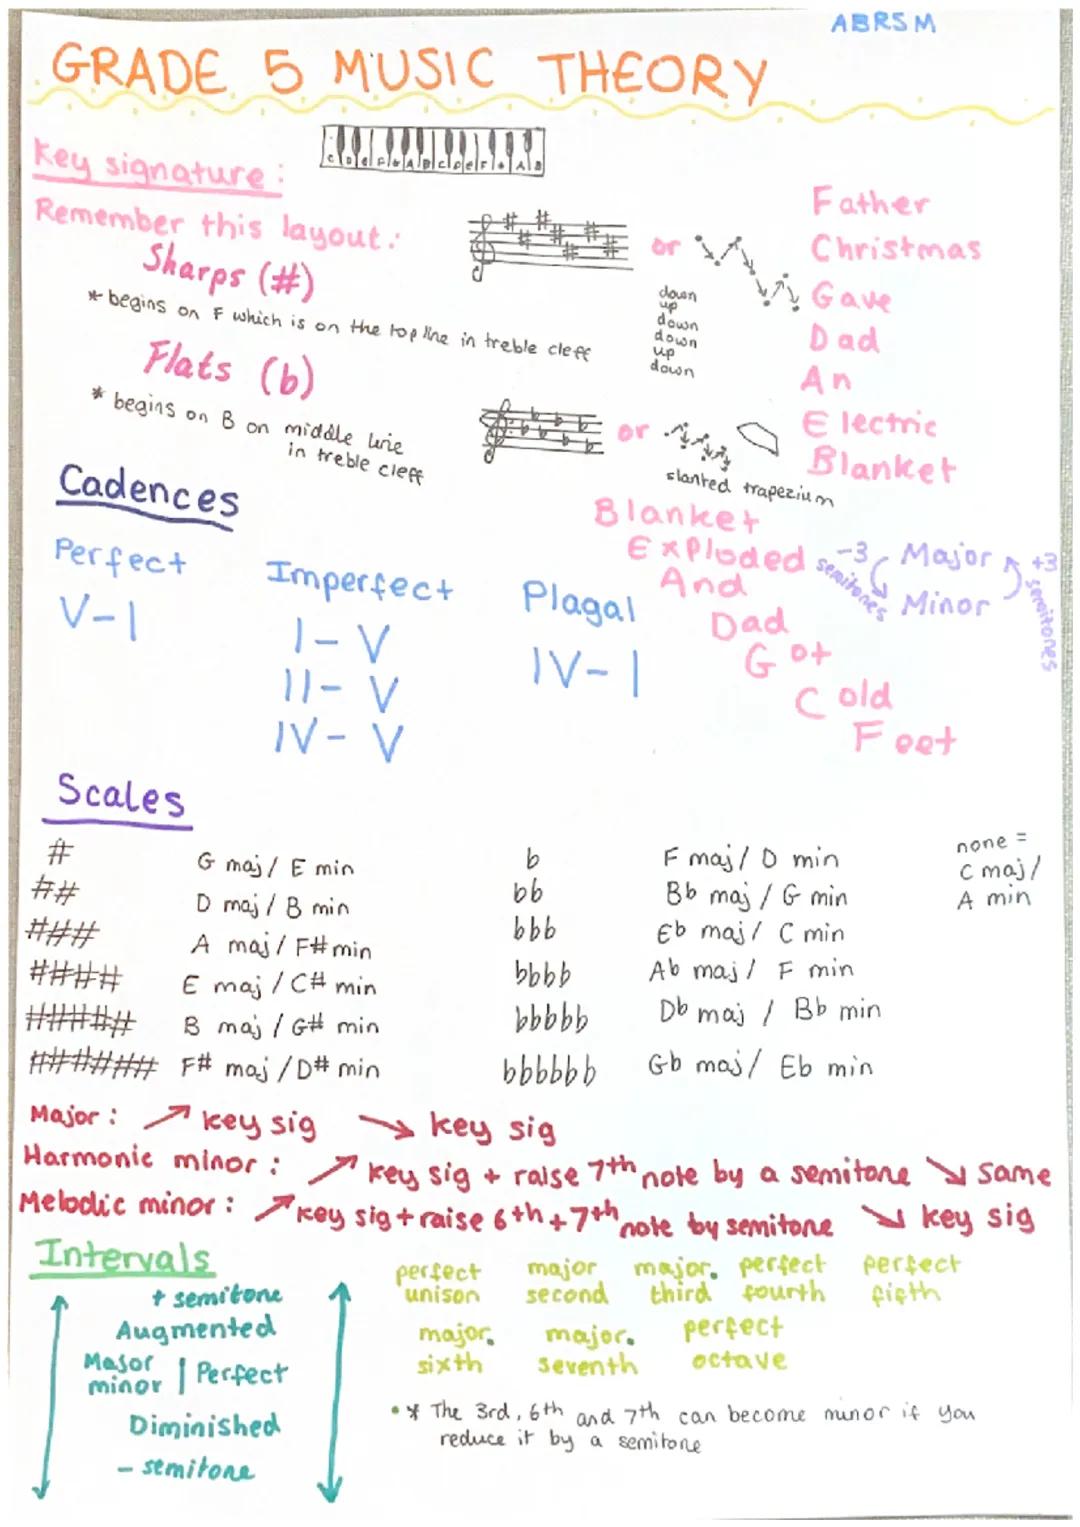 ABRSM
GRADE 5 MUSIC THEORY
Key signature:
Remember this layout:
Sharps (#)
* begins on F which is on the top line in treble cleff
or
down
up
down
down
up
down
Father
Christmas
Gave
Dad
An
Electric
Blanket
Flats (b)
* begins on B on middle line
in treble cleff
or
slanted trapezium
Blanket
Exploded
And
Dad
Got
Cold
Feet
-3 semitones
Major
Minor
+3 semitones
Cadences
Perfect
V-I
Imperfect
I-V
II-V
IV-V
Plagal
IV-I
Scales
# G maj/ E min
## D maj/ B min
### A maj/ F# min
#### E maj/ C# min
##### B maj/ G# min
###### F# maj/D# min
b F maj/ D min
bb Bb maj/ G min
bbb Eb maj/ C min
bbbb Ab maj/ F min
bbbbb Db maj/ Bb min
bbbbbb Gb maj/ Eb min
none =
C maj/
A min
Major: ↗ key sig ↘ key sig
Harmonic minor: ↗ key sig + raise 7th note by a semitone ↘ same
Melodic minor: ↗ key sig + raise 6th + 7th note by semitone ↘ key sig
Intervals
+ semitone
Augmented
Major
minor | Perfect
Diminished
- semitone
perfect unison major second major third perfect fourth perfect fifth
major sixth major seventh perfect octave
* The 3rd, 6th and 7th can become minor if you
reduce it by a semitone